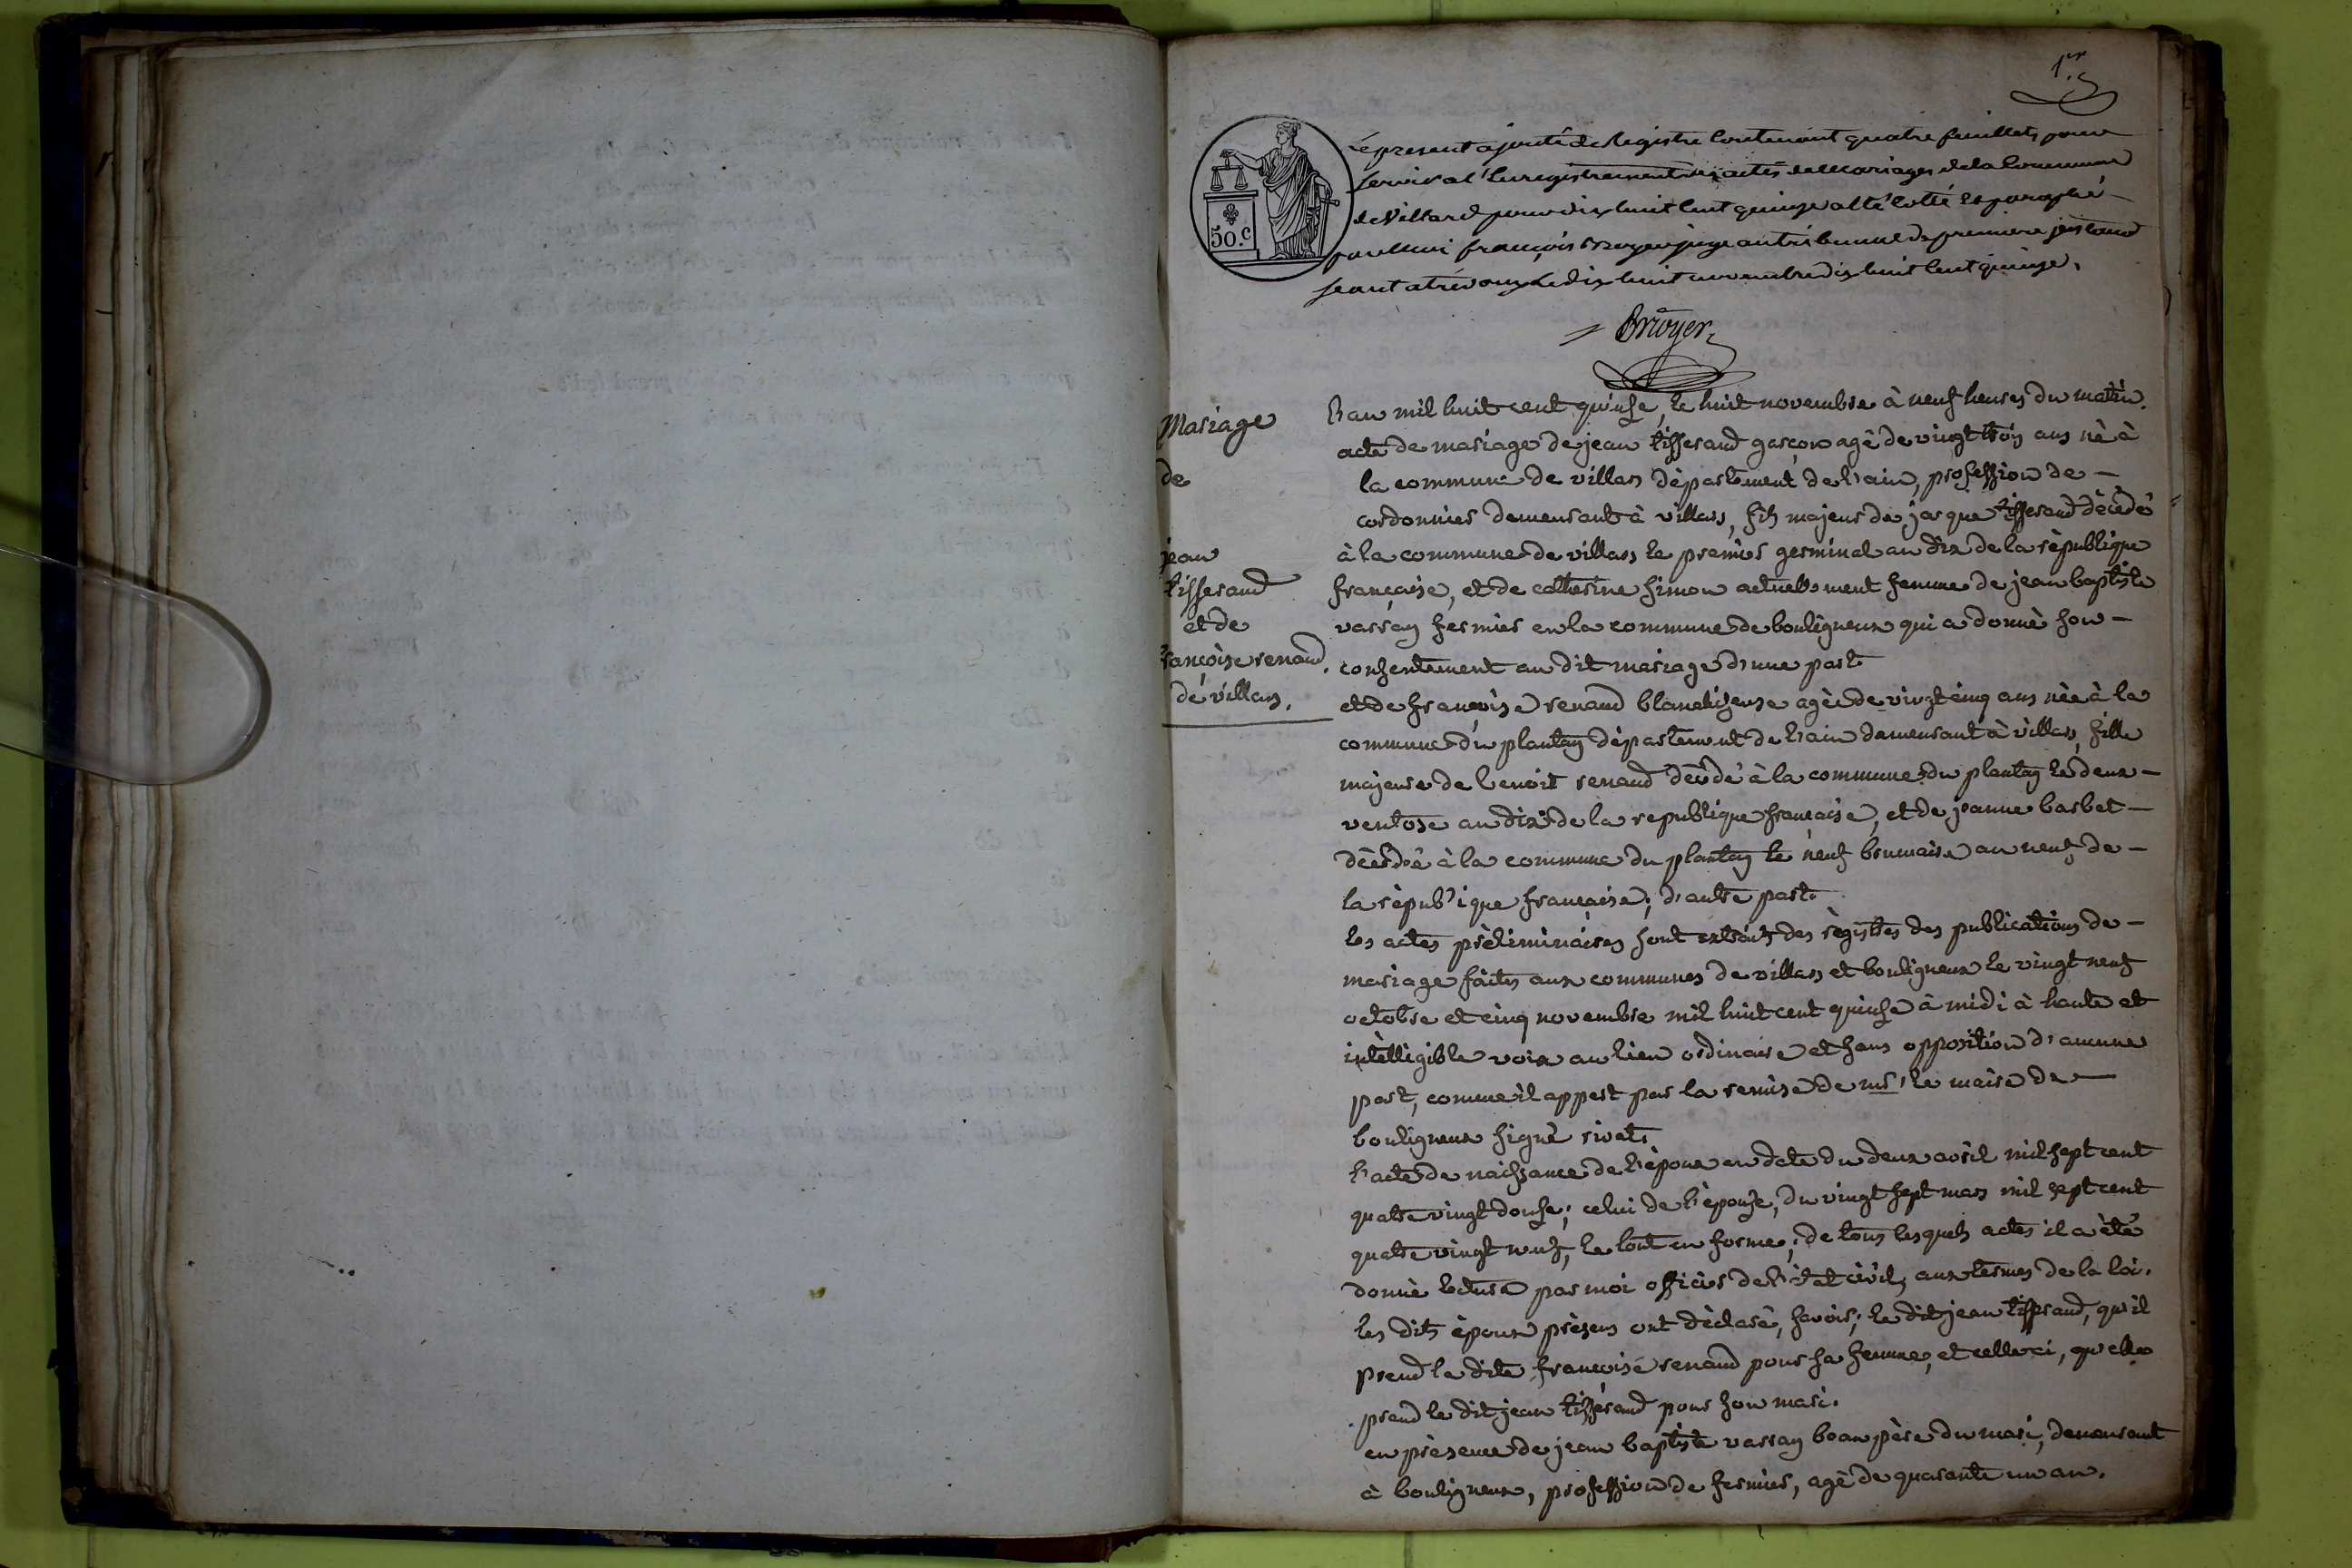 1er
le present ajouté de Registre contenant quatre feuillets pour
servir a l'enregistrement des actes de Mariages de la Commune
de Villard pour dix huit cent quinze a été cotté et paraphé
par Nous françois Bruyer juge au tribunal de premiere instance
seant a trévoux le dix huit novembre dix huit cent quinze.
50.c
Bruyer
Mariage
de
jean
tisserand
et de
françoise renand.
de villars.
L'an mil huit cent quinse, le huit novembre à neuf heures du matin.
acte de mariage de jean tisserand garçon agé de vingt trois ans né à
la commune de villars département de l'ain, profession de —
cordonnier demeurant à villars, fils majeur de jacque tisserand décédé
à la commune de villars le premier germinal an dix de la république
française, et de catherine simon actuellement femme de jean baptiste
varray fermier en la commune de bouligneux qui a donné son —
consentement au dit mariage d'une part
et de françoise renand blanchiseuse agée de vingt cinq ans née à la
commune du plantay département de l'ain demeurant à villars, fille
majeure de benoit renand décédé à la commune du plantay le deux —
ventose an dix de la republique française, et de jeanne barbet —
décédé à la commune du plantay le neuf brumaire an neuf de —
la république française; d'autre part.
les actes préliminaires sont extraits des régistres des publications de —
mariage faites aux communes de villars et bouligneux le vingt neuf
octobre et cinq novembre mil huit cent quinse à midi à haute et
intélligible voix au lieu ordinaire et sans opposition d'aucune
part, comme il appert par la remise de mr le maire de —
bouligneux signé rivat.
l'acte de naissance de l'époux en date du deux avril mil sept cent
quatre vingt douse; celui de l'épouse, du vingt sept mars mil sept cent
quatre vingt neuf, le tout en forme; de tous lesquels actes il a été
donné lecture par moi officier de l'état civil, aux termes de la loi.
les dits époux présens ont déclaré, savoir; le dit jean tisserand, qu'il
prend la dite françoise renand pour sa femme, et celle ci, qu'elle
prend le dit jean tisserand pour son mari.
en présence de jean baptiste varray beau père du mari, demeurant
à bouligneux, profession de fermier, agé de quarante un an.